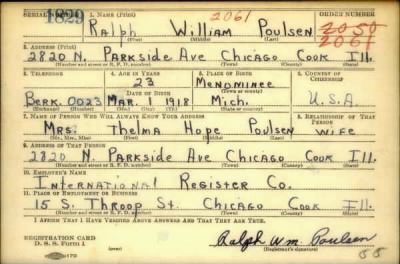 SERIAL NUMBER 1. NAME (Print) ORDER NUMBER
1829 2061 2050
Ralph William Poulsen 2061
(First) (Middle) (Last)
2. ADDRESS (Print)
2820 N. Parkside Ave Chicago Cook Ill.
(Number and street or R. F. D. number) (Town) (County) (State)
3. TELEPHONE 4. AGE IN YEARS 5. PLACE OF BIRTH 6. COUNTRY OF CITIZENSHIP
23 Menominee
(Town or county)
Berk. 0023 Mar. 1 1918 Mich. U.S.A
7. NAME OF PERSON WHO WILL ALWAYS KNOW YOUR ADDRESS 8. RELATIONSHIP OF THAT PERSON
Mrs. Thelma Hope Poulsen Wife
(Mr., Mrs., Miss) (First) (Middle) (Last)
9. ADDRESS OF THAT PERSON
2820 N. Parkside Ave Chicago Cook Ill.
(Number and street or R. F. D. number) (Town) (County) (State)
10. EMPLOYER'S NAME
International Register Co.
11. PLACE OF EMPLOYMENT OR BUSINESS
15 S. Throop St. Chicago Cook Ill.
(Number and street or R. F. D. number) (Town) (County) (State)
I AFFIRM THAT I HAVE VERIFIED ABOVE ANSWERS AND THAT THEY ARE TRUE.
REGISTRATION CARD
D. S. S. Form 1 (over) Ralph Wm. Poulsen
(Registrant's signature)